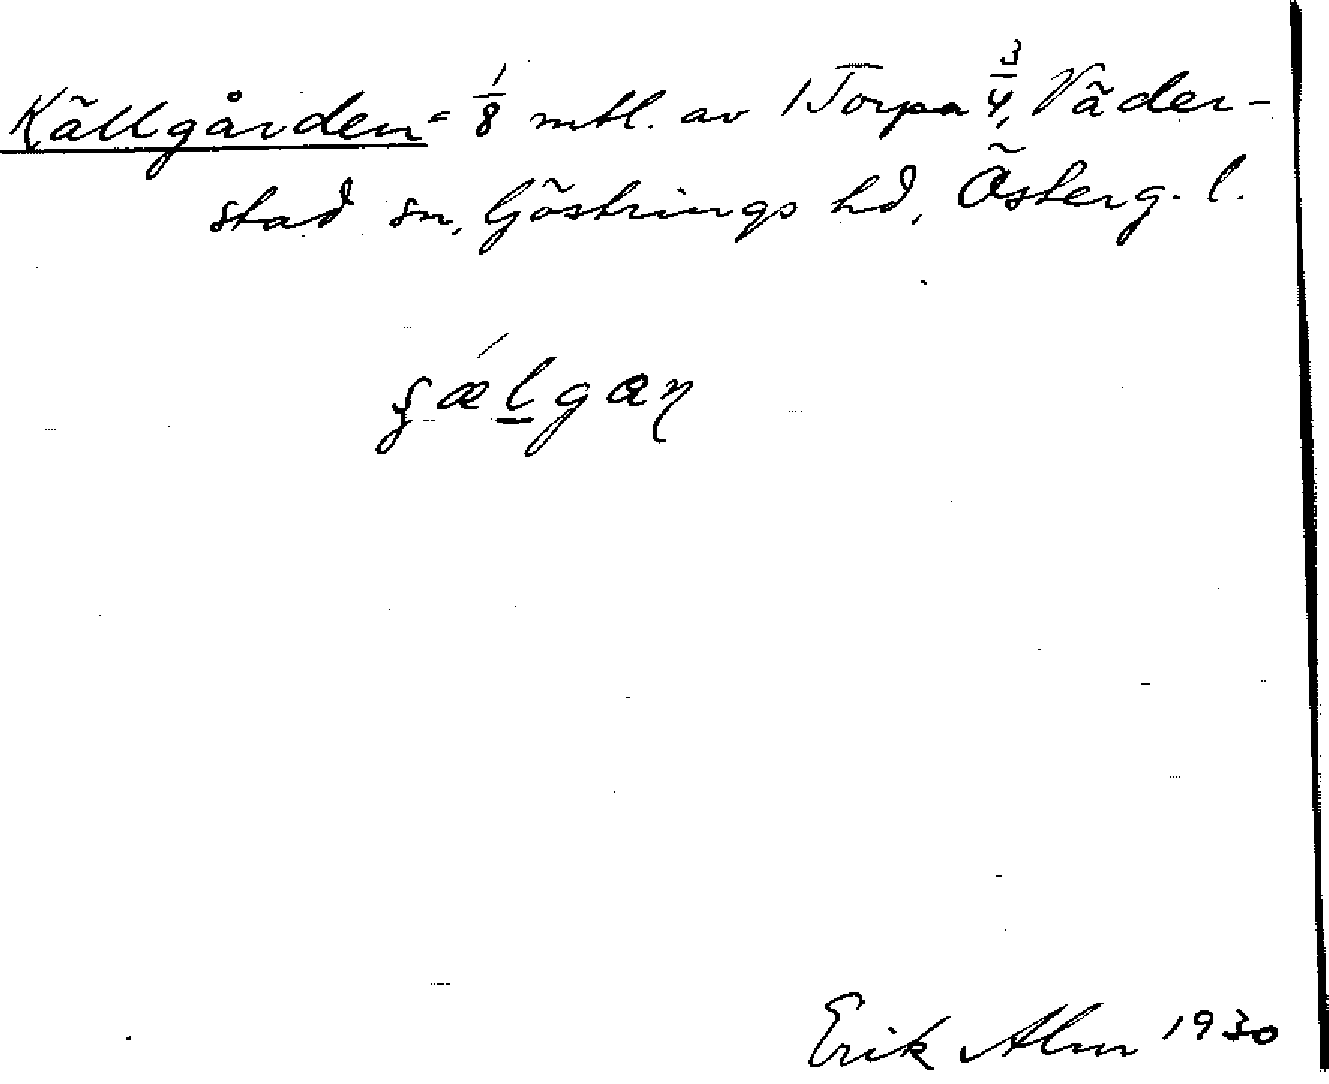 Källgården = 1/8 mtl. av 1 Torpa 3/4, Väder-
stad sn, Göstrings hd, Österg. l.
Erik Alm 1930